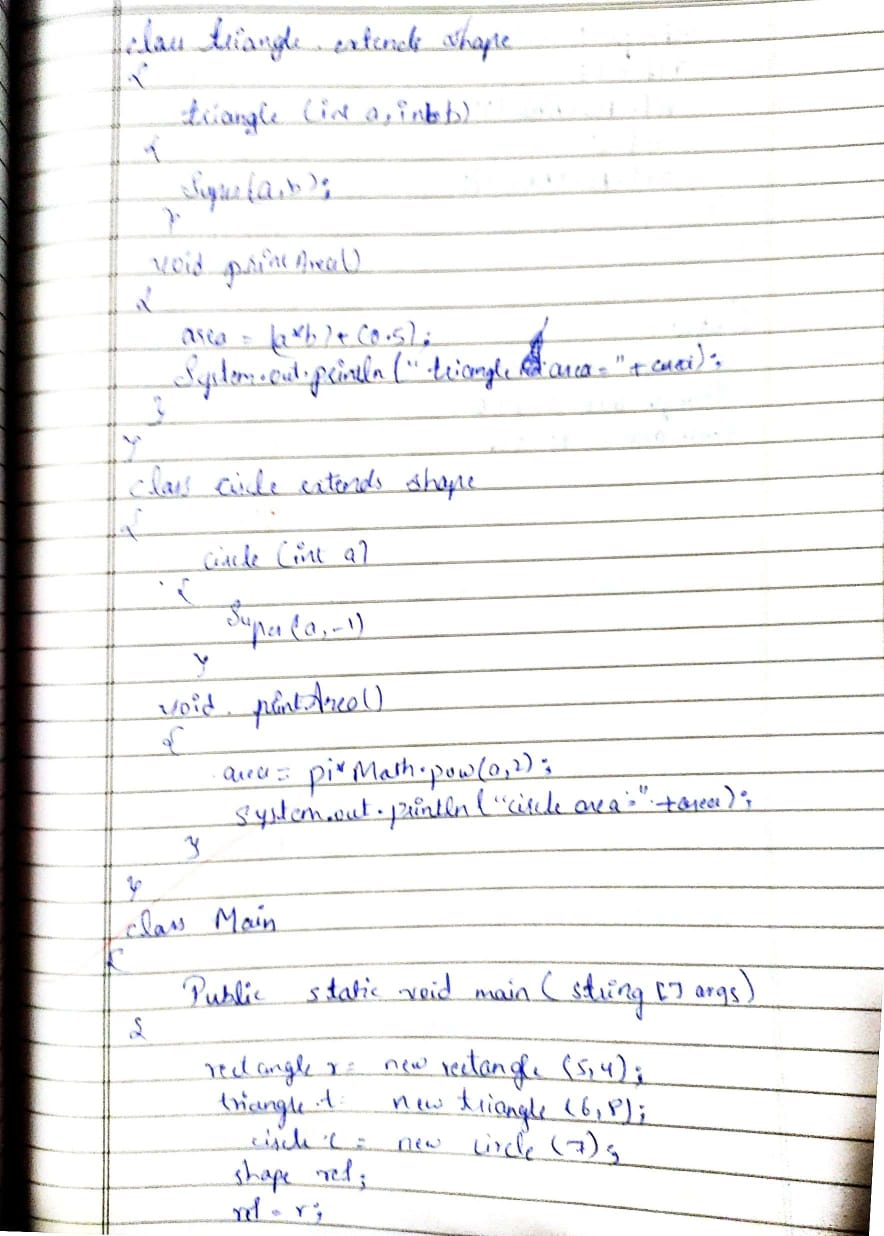 class triangle extends shape
{
triangle (int a, int b)
{
Super(a,b);
}
void printArea()
{
area = (a*b)*(0.5);
System.out.println("triangle area="+area);
}
}
class circle extends shape
{
circle (int a)
{
Super(a,-1)
}
void printArea()
{
area = pi*Math.pow(a,2);
System.out.println("circle area:"+area);
}
}
class Main
{
Public static void main (string [] args)
{
rectangle r= new rectangle (5,4);
triangle t= new triangle (6,8);
circle c = new circle (7);
shape ref;
ref = r;